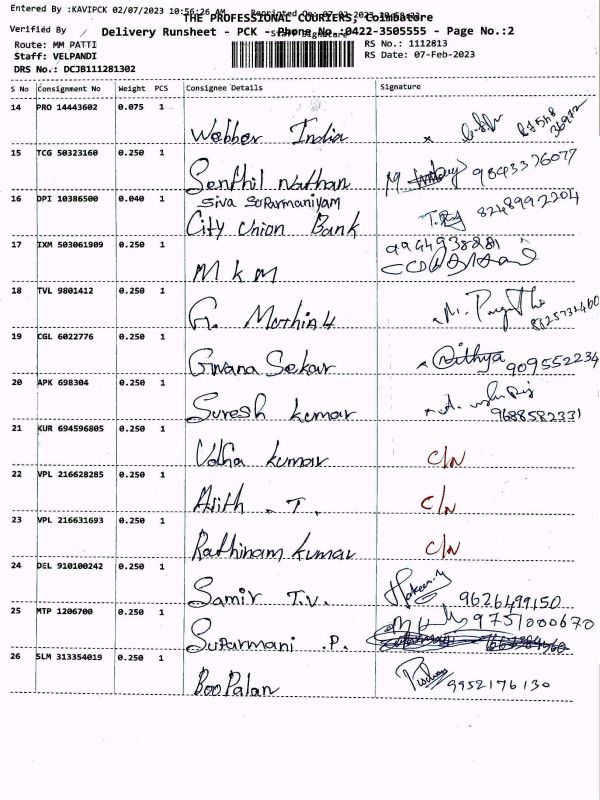 Entered By :KAVIPCK 02/07/2023 10:56:26 AM
THE PROFESSIONAL COURIERS, Coimbatore
Verified By
Delivery Runsheet - PCK - Phone No.:0422-3505555 - Page No.:2
Route: MM PATTI
RS No.: 1112813
Staff: VELPANDI
RS Date: 07-Feb-2023
DRS No.: DCJB111281302
S No Consignment No Weight PCS Consignee Details Signature
14 PRO 14443602 0.075 1
Webber India
15 TCG 50323160 0.250 1
Senthil Nathan 9843376077
16 DPI 10386500 0.040 1
Siva Suparmaniyam
City Union Bank 8248992204
17 IXM 503061909 0.250 1
M K M
18 TVL 9801412 0.250 1
G.
19 CGL 6022776 0.250 1
Gnana Sekar Nithya 909552234
20 APK 698304 0.250 1
Suresh Kumar 9688582331
21 KUR 694596805 0.250 1
Udha Kumar C/N
22 VPL 216628285 0.250 1
Ajith . T. C/N
23 VPL 216631693 0.250 1
Rathinam Kumar C/N
24 DEL 910100242 0.250 1
Samir T.V. 9626499150
25 MTP 1206700 0.250 1
Suparmani .P. 9751000670
26 SLM 313354019 0.250 1
Boo Palan 9952176130